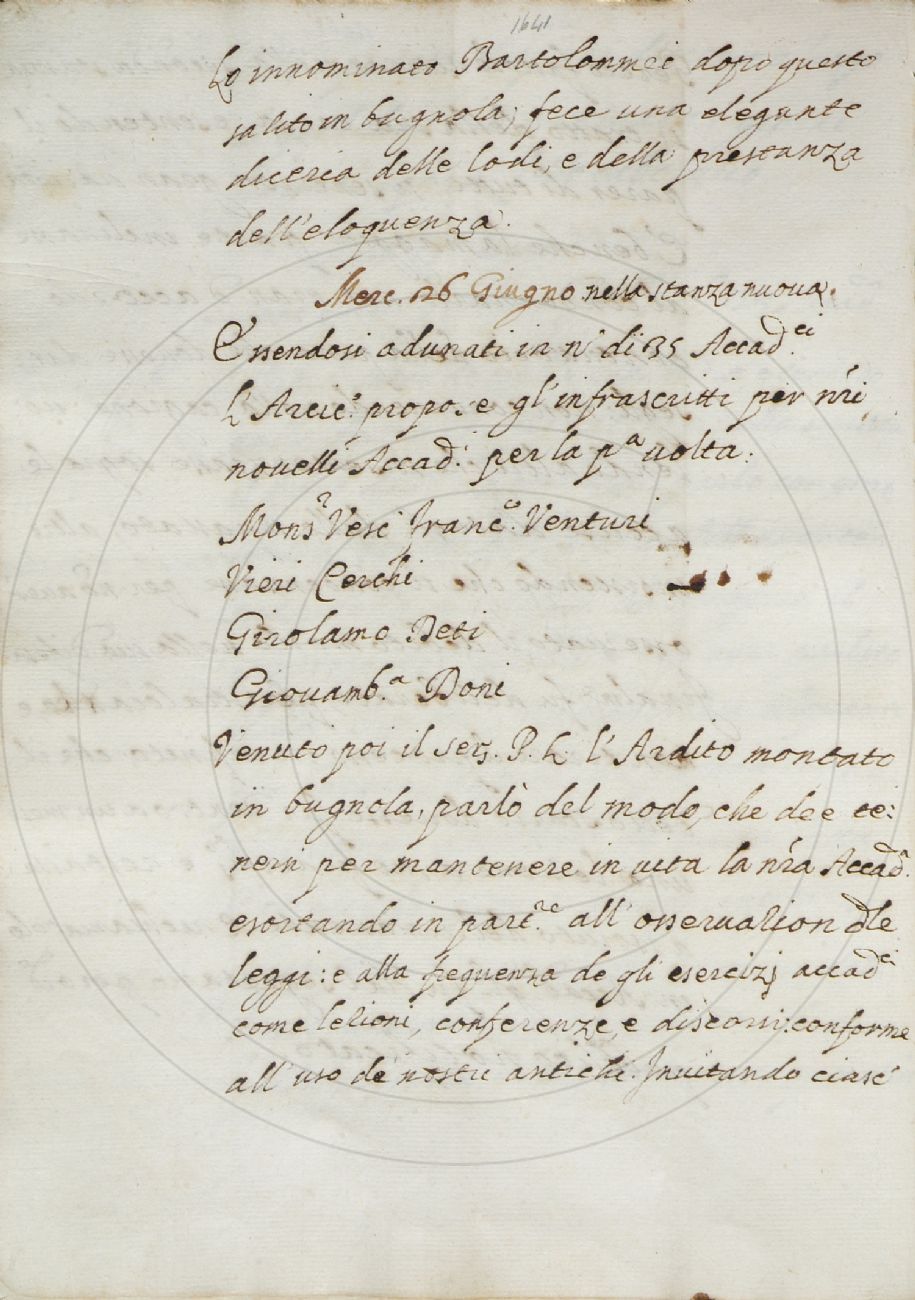 1641
Lo innominato Bartolommei dopo questo
salito in bugnola; fece una elegante
diceria delle lodi, e della prestanza
dell'eloquenza.
Merc. 26 Giugno nella stanza nuova.
Essendosi adunati in n° di 35 Accad.ci
L'Arcic.° propose gl'infrascritti per nri
novelli Accad.i per la p.a volta.
Mons.r Vesc° Franc.o Venturi
Vieri Cerchi
Girolamo Beti
Giovamb.a Doni
Venuto poi il Ser. P. L. l'Ardito montato
in bugnola, parlò del modo, che dee te:
nersi per mantenere in vita la nra Accad.a
esortando in part.re all'osservazion dle
leggi: e alla frequenza de gli esercizj accad.ci
come lezioni, conferenze, e discorsi: conforme
all'uso de nostri antichi. Invitando ciasc°